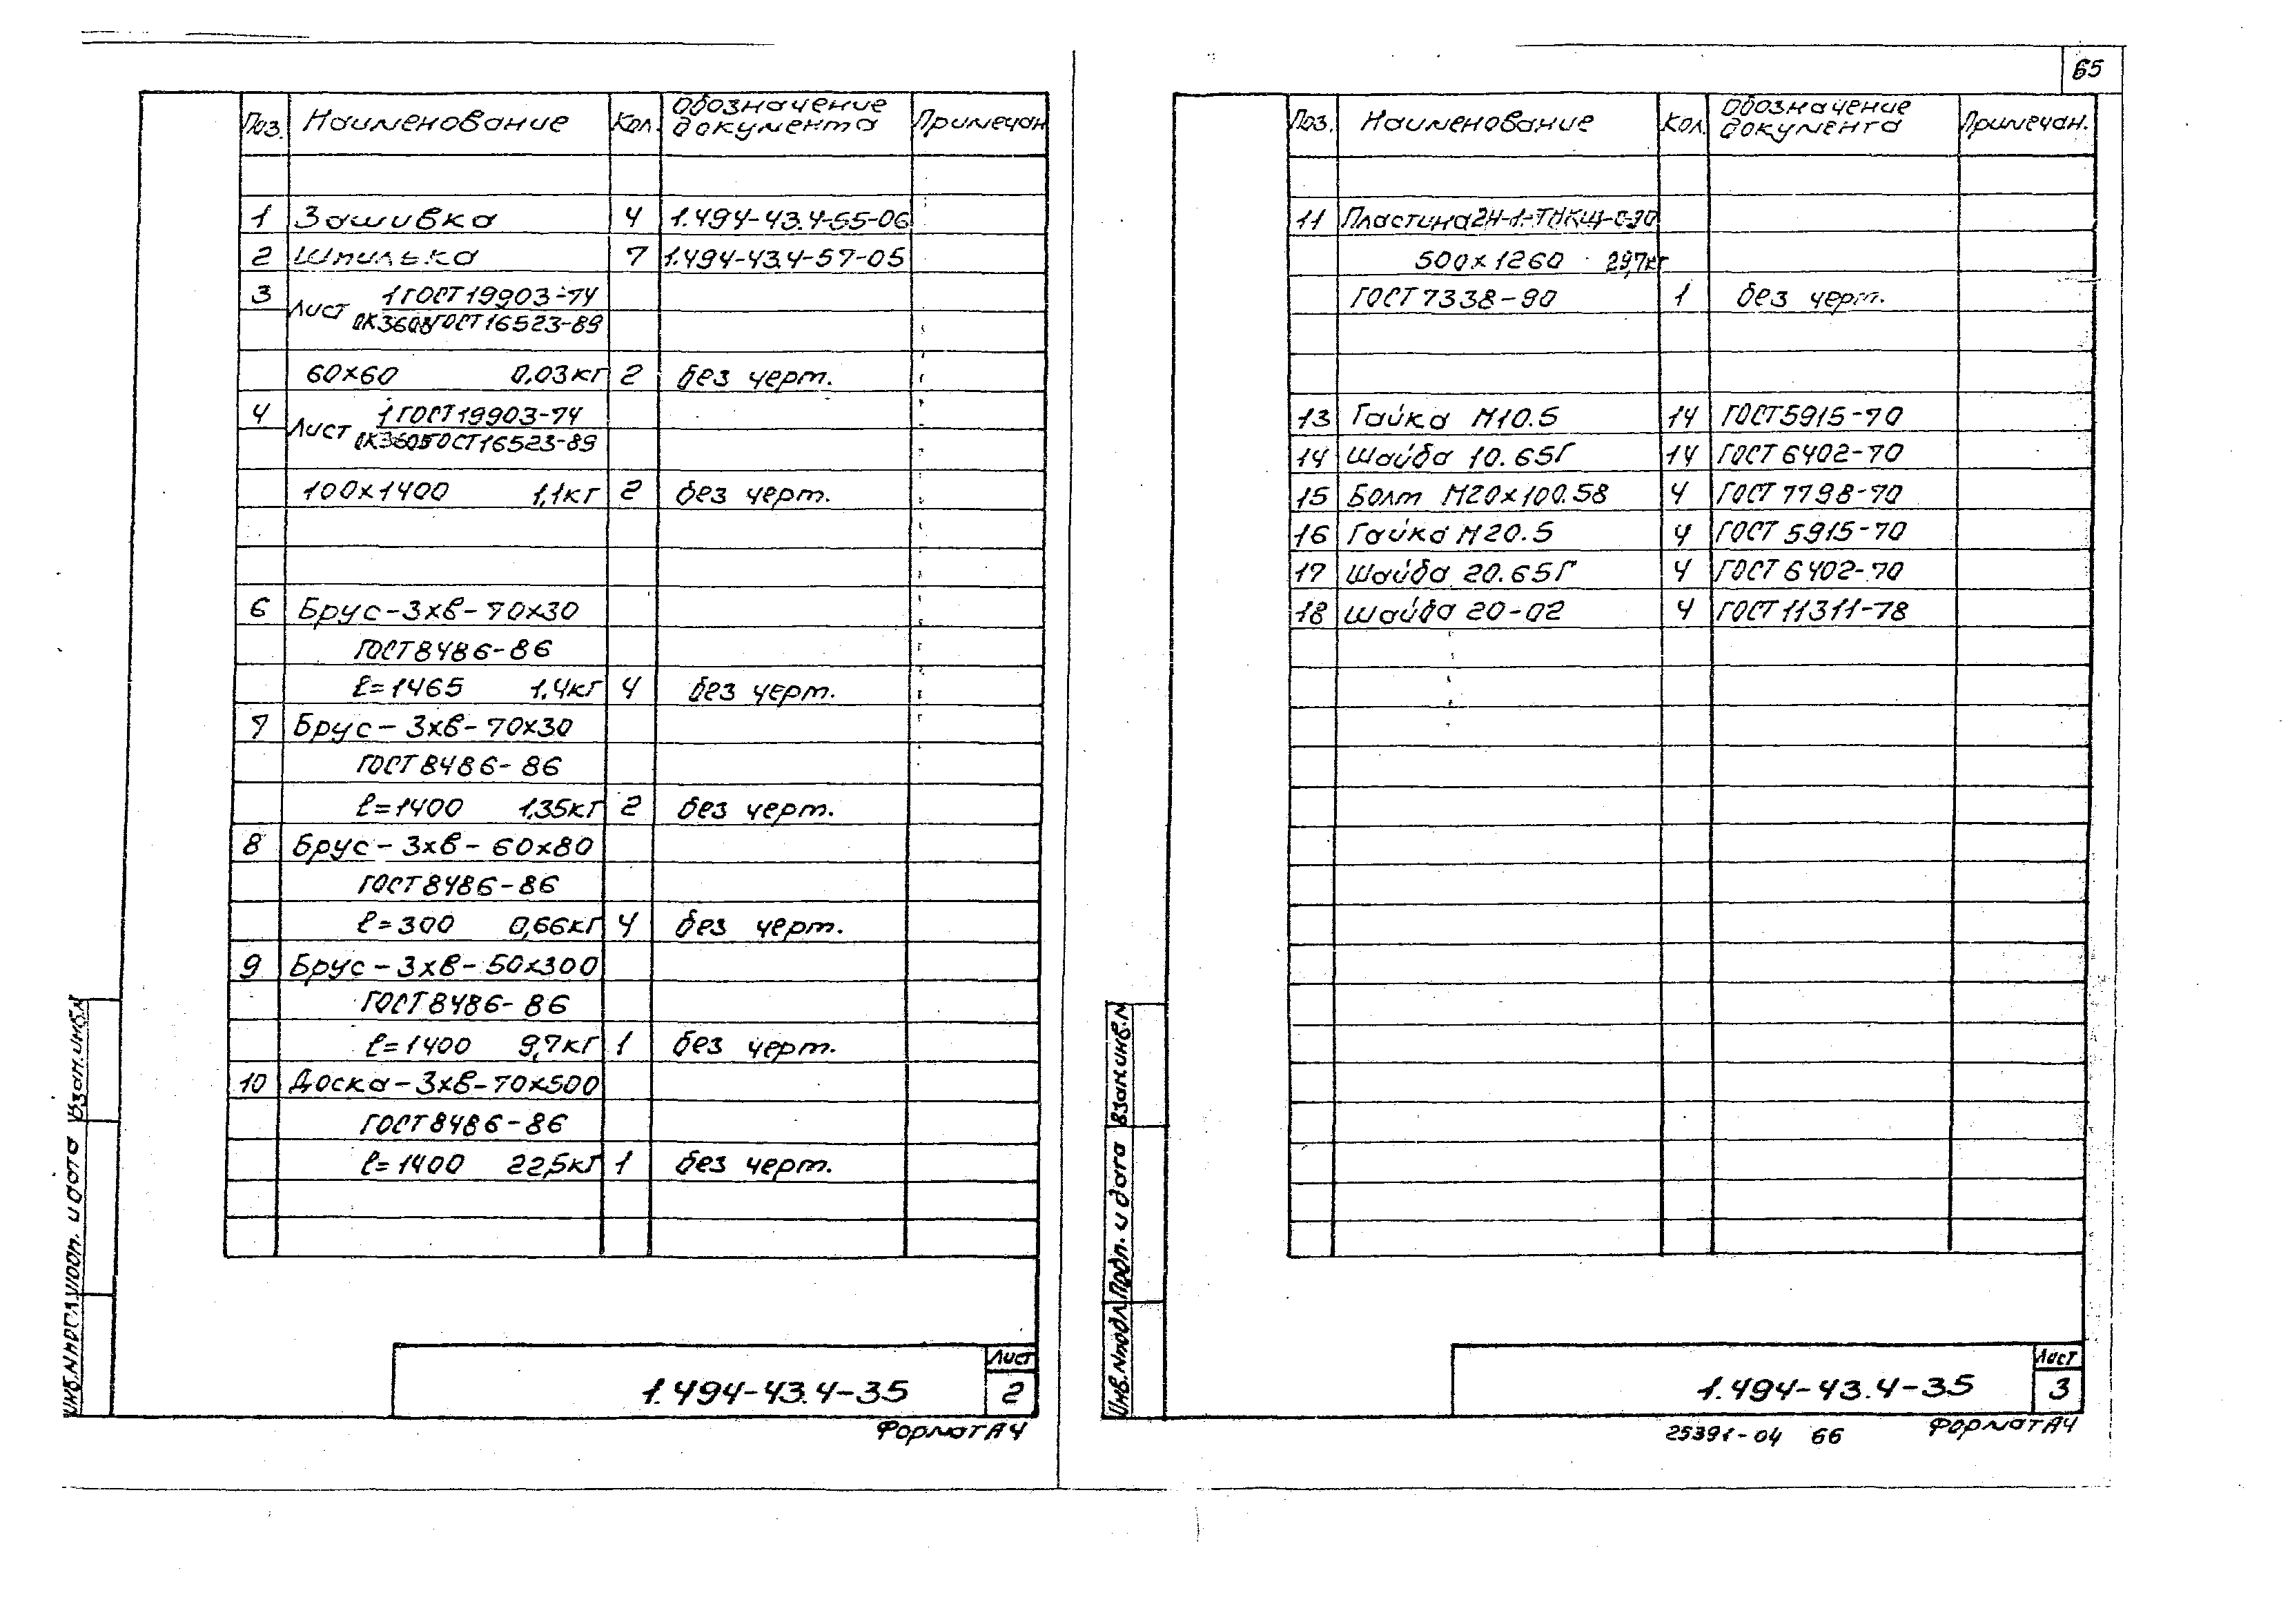 65
Поз. Наименование Кол. Обозначение документа Примечан
1 Зашивка 4 1.494-43.4-55-06
2 Шпилька 7 1.494-43.4-57-05
3 Лист 1 ГОСТ 19903-74
ОК360В ГОСТ 16523-89
60х60 0,03кг 2 без черт.
4 Лист 1 ГОСТ 19903-74
ГОСТ 16523-89
100х1400 1,1кг 2 без черт.
6 Брус-3хв-70х30
ГОСТ 8486-86
ℓ=1465 1,4кг 4 без черт.
7 Брус-3хв-70х30
ГОСТ 8486-86
ℓ=1400 1,35кг 2 без черт.
8 Брус-3хв-60х80
ГОСТ 8486-86
ℓ=300 0,66кг 4 без черт.
9 Брус-3хв-50х300
ГОСТ 8486-86
ℓ=1400 9,7кг 1 без черт.
10 Доска-3хв-70х500
ГОСТ 8486-86
ℓ=1400 22,5кг 1 без черт.
Взам.инв.N
и дата
Лист
1.494-43.4-35 2
Формат А4
Поз. Наименование Кол. Обозначение документа Примечан.
11 Пластина 2Н-1-ТМКЩ-С-30
500х1260 29,7кг
ГОСТ 7338-90 1 без черт.
13 Гайка М10.5 14 ГОСТ 5915-70
14 Шайба 10.65Г 14 ГОСТ 6402-70
15 Болт М20х100.58 4 ГОСТ 7798-70
16 Гайка М20.5 4 ГОСТ 5915-70
17 Шайба 20.65Г 4 ГОСТ 6402-70
18 Шайба 20-02 4 ГОСТ 11371-78
Взам.инв.N
Подп. и дата
Инв.Nподл.
Лист
1.494-43.4-35 3
25391-04 66 Формат А4